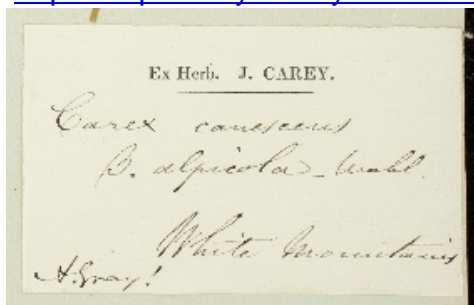 Ex Herb. J. CAREY.
Carex canescens
β. alpicola – Wahl.
White Mountains
A. Gray!